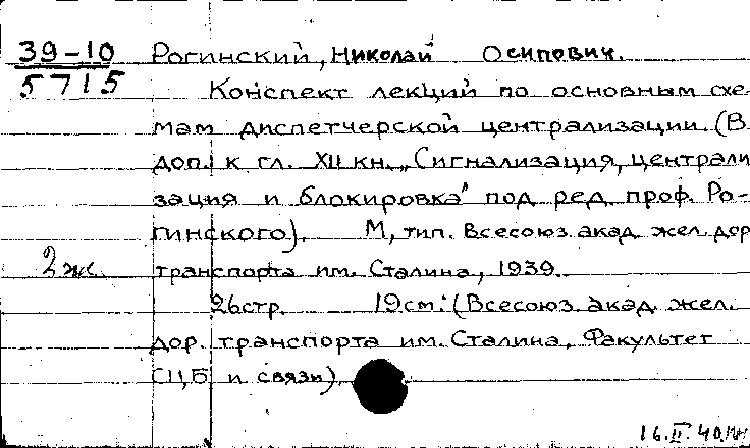 39-10 Рогинский, Николай Осипович.
5715 Конспект лекций по основным схе-
мам диспетчерской централизации. (В
доп. к гл. XII кн. „Сигнализация, централи
зация и блокировка" под ред. проф. Ро-
гинского). М, тип. Всесоюз. акад. жел. дор
2 ж. транспорта им. Сталина, 1939.
26 стр. 19 см. (Всесоюз. акад. жел.
дор. транспорта им. Сталина, Факультет
СЦБ и связи)
16.II.40.